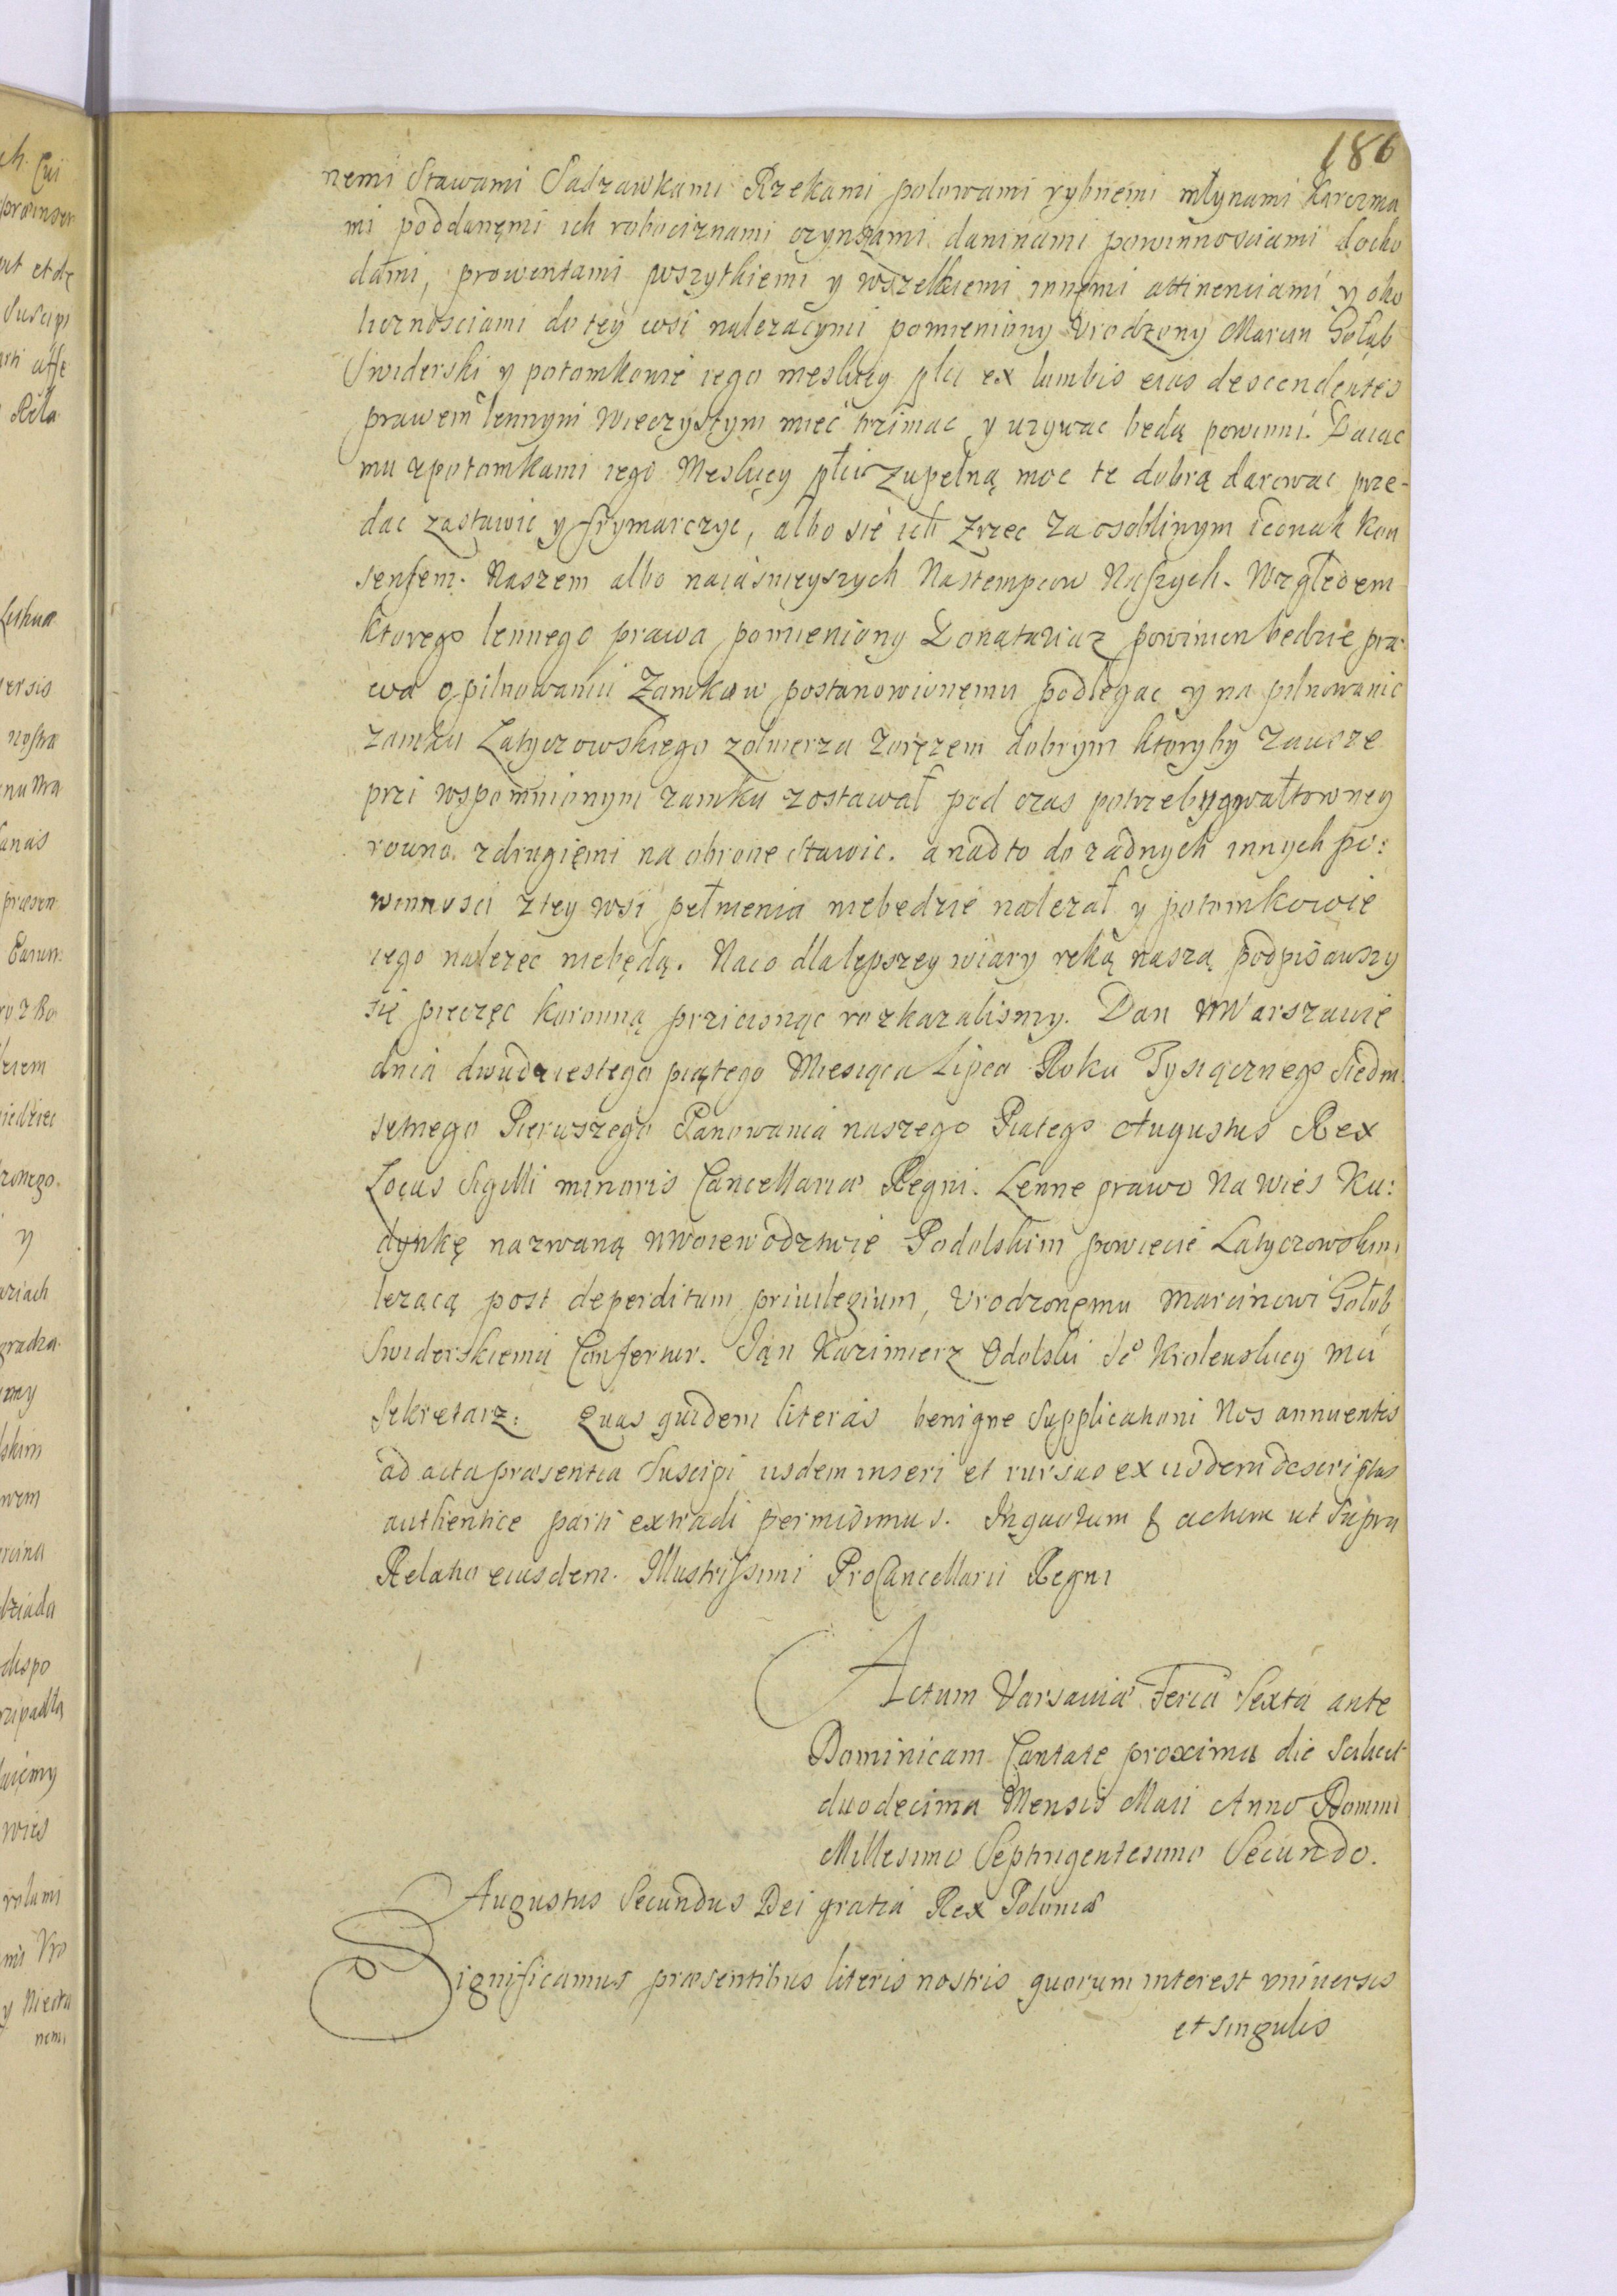 186
nemi Stawami Sadzawkami Rzekami połowami rybnemi młynami karczma
mi poddanęmi ich robociznami czynszami daninami powinnosciami docho
dami, prowentami wszytkiemi y wszelkiemi innęmi attinenciami y oko
licznosciami do tey wsi nalezacymi pomieniony Urodzony Marcin Gołąb
Swiderski y potomkowie iego męskiey płci ex lumbis eius descendentes
prawem lennym wieczystym miec trzimac y uzywac będą powinni. Daiąc
mu zpotomkami iego Męskiey płci zupełną moc te dobra darowac prze-
dac zastawic y frymarczyc, albo się ich zrzec za osobliwym iednak kon
sensem. Naszem albo naiasnieyszych Nastempcow Naszych. Względem
ktorego lennego prawa pomieniony Donatariaz powinien będzie pra-
wa opilnowaniu Zamkow postanowionęmu podlegac y na pilnowanie
zamku Latyczowskiego zołnierza zorężem dobrym ktoryby zawsze
przi wspomnionym zamku zostawał pod czas potrzeby gwałtowney
rowno zdrugięmi na obronę stawic. a nadto do zadnych innych po:
winnosci z tey wsi pełnienia niebędzie nalezał y potomkowie
iego nalezec niebędą. Naco dla lepszey wiary ręką naszą podpisawszy
się pieczęc koronną przicisnąc rozkazalismy. Dan w Warszawie
dnia dwudziestego piątego Miesiąca Lipca Roku Tysiącznego Siedm
setnego Pierwszego Panowania naszego Piątego Augustus Rex
Locus Sigilli minoris Cancellariæ Regni. Lenne prawo na wies Ku:
dynkę nazwaną w Woiewodztwie Podolskim powiecie Latyczowskim
lezącą post deperditum priuilegium, Urodzonęmu Marcinowi Gołąb
Swiderskiemu Confertur. Ian Kazimierz Odolski Je° Krolewskiey Mci
Sekretarz. Quas quidem literas benigne Supplicationi Nos annuentes
ad acta præsentia Suscipi iisdem inseri et rursus ex iisdem descriptas
authentice parti extradi permisimus. In quorum & actum ut Supra
Relatio eiusdem. Illustrissimi ProCancellarii Regni
Actum Varsaviæ Feria Sexta ante
Dominicam Cantate proxima die Scilicet
duodecima Mensis Maii Anno Domini
Millesimo Septingentesimo Secundo.
Augustus Secundus Dei gratia Rex Poloniæ
Significamus præsentibus literis nostris quorum interest vniuersis
et singulis